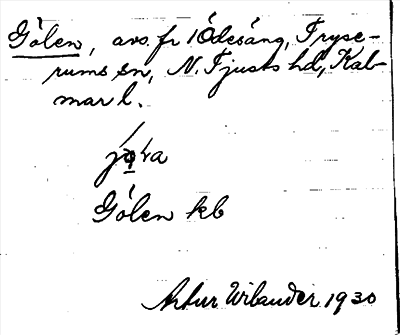 Gölen, avs. fr. 1 Ödesäng, Tryse-
rums sn, N. Tjusts hd, Kal-
mar l.
Gölen kb
Artur Wilander 1930